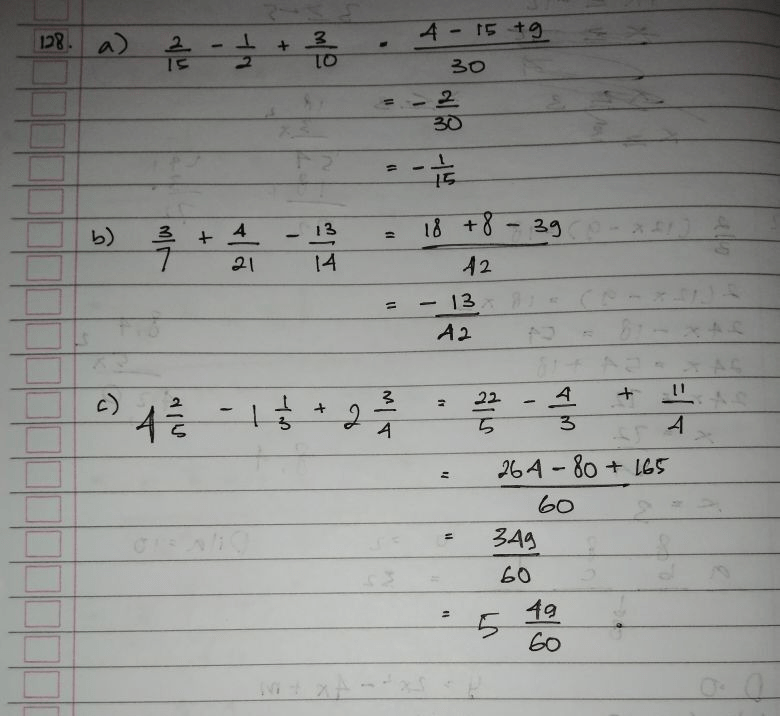 128. a) 2/15 - 1/2 + 3/10 = (4 - 15 + 9)/30
= - 2/30
= - 1/15
b) 3/7 + 4/21 - 13/14 = (18 + 8 - 39)/42
= - 13/42
c) 4 2/5 - 1 1/3 + 2 3/4 = 22/5 - 4/3 + 11/4
= (264 - 80 + 165)/60
= 349/60
= 5 49/60